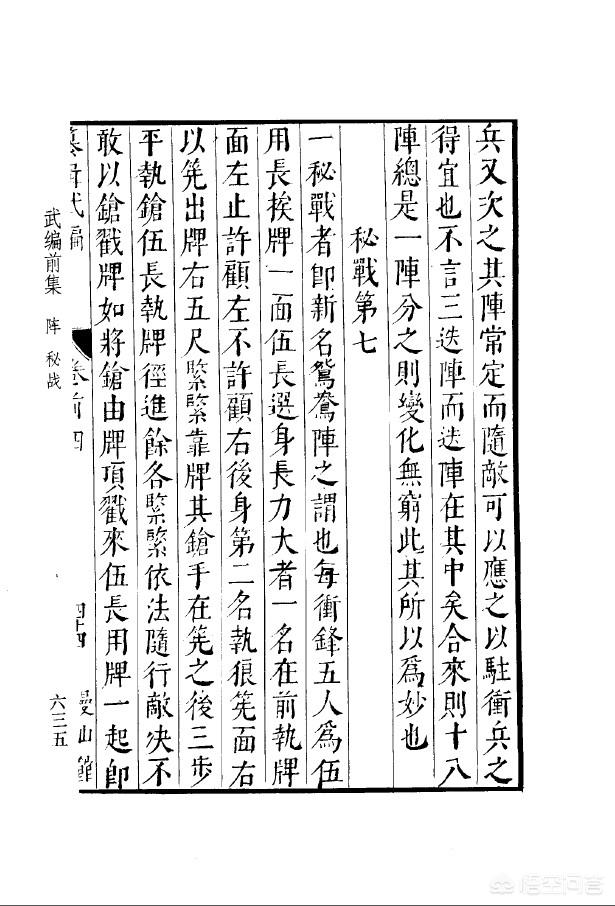 兵又次之其陣常定而隨敵可以應之以駐衝兵之
得宜也不言三迭陣而迭陣在其中矣合來則十八
陣總是一陣分之則變化無窮此其所以爲妙也
秘戰第七
一秘戰者卽新名鴛鴦陣之謂也每衝鋒五人爲伍
用長挨牌一面伍長選身長力大者一名在前執牌
面左止許顧左不許顧右後身第二名執狼筅面右
以筅出牌右五尺緊緊靠牌其鎗手在筅之後三步
平執鎗伍長執牌徑進餘各緊緊依法隨行敵决不
敢以鎗戳牌如將鎗由牌頂戳來伍長用牌一起卽
卷前四
四十四
曼山館
武编前集 阵 秘战
六三五
悟空问答